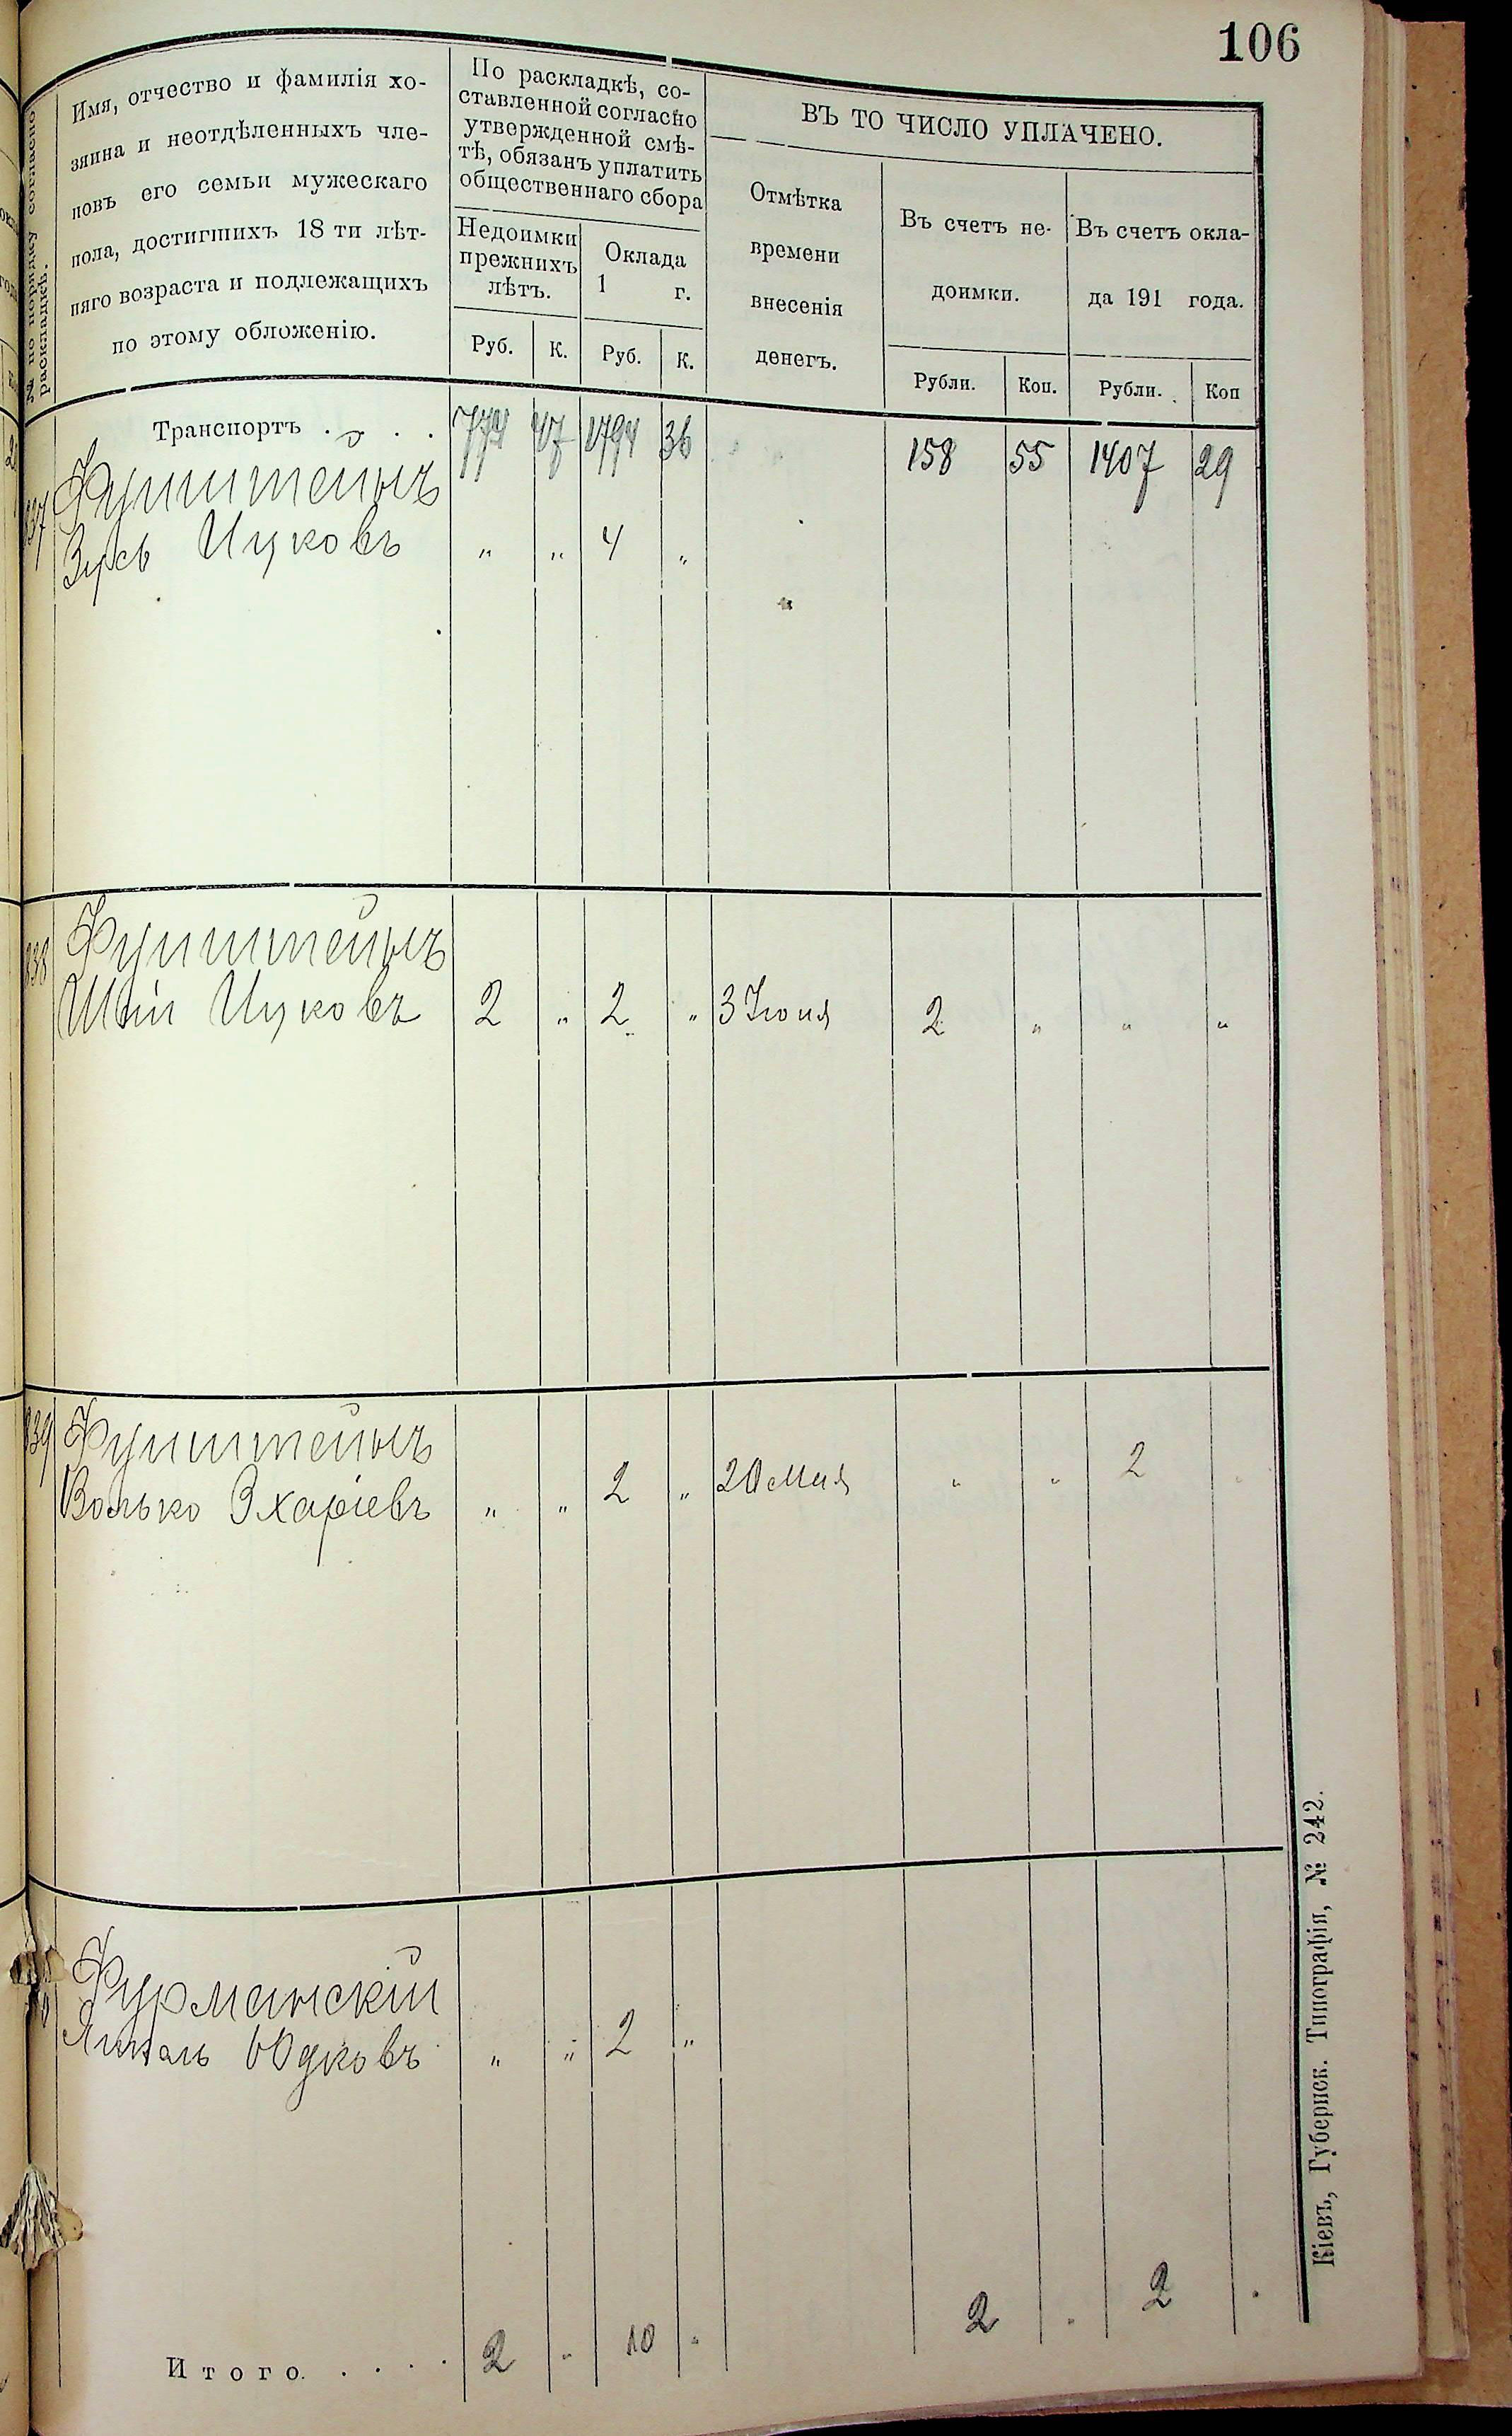 106
№ по порядку согласно раскладкѣ.
Имя, отчество и фамилія хо-
зяина и неотдѣленныхъ чле-
новъ его семьи мужескаго
пола, достигшихъ 18 ти лѣт-
няго возраста и подлежащихъ
по этому обложенію.
По раскладкѣ, со-
ставленной согласно
утвержденной смѣ-
тѣ, обязанъ уплатить
общественнаго сбора
Недоимки
прежнихъ
лѣтъ.
Оклада
1 г.
Руб. К. Руб. К.
ВЪ ТО ЧИСЛО УПЛАЧЕНО.
Отмѣтка
времени
внесенія
денегъ.
Въ счетъ не-
доимки.
Въ счетъ окла-
да 191 года.
Рубли. Коп. Рубли. Коп
Транспортъ . . . . 47 1794 36 158 55 1407 29
837 Фуштейнъ
Зусь Ицковъ " " 4 "
838 Фуштейнъ
Ицковъ 2 " 2 " 3 Іюня 2 " " "
839 Фуштейнъ
Волько " " 2 " 20 Мая " " 2
Фурманскій
Юдковъ " " 2 "
Итого. . . . . 2 " 10 " 2 . 2 .
Кіевъ, Губернск. Типографія, № 242.